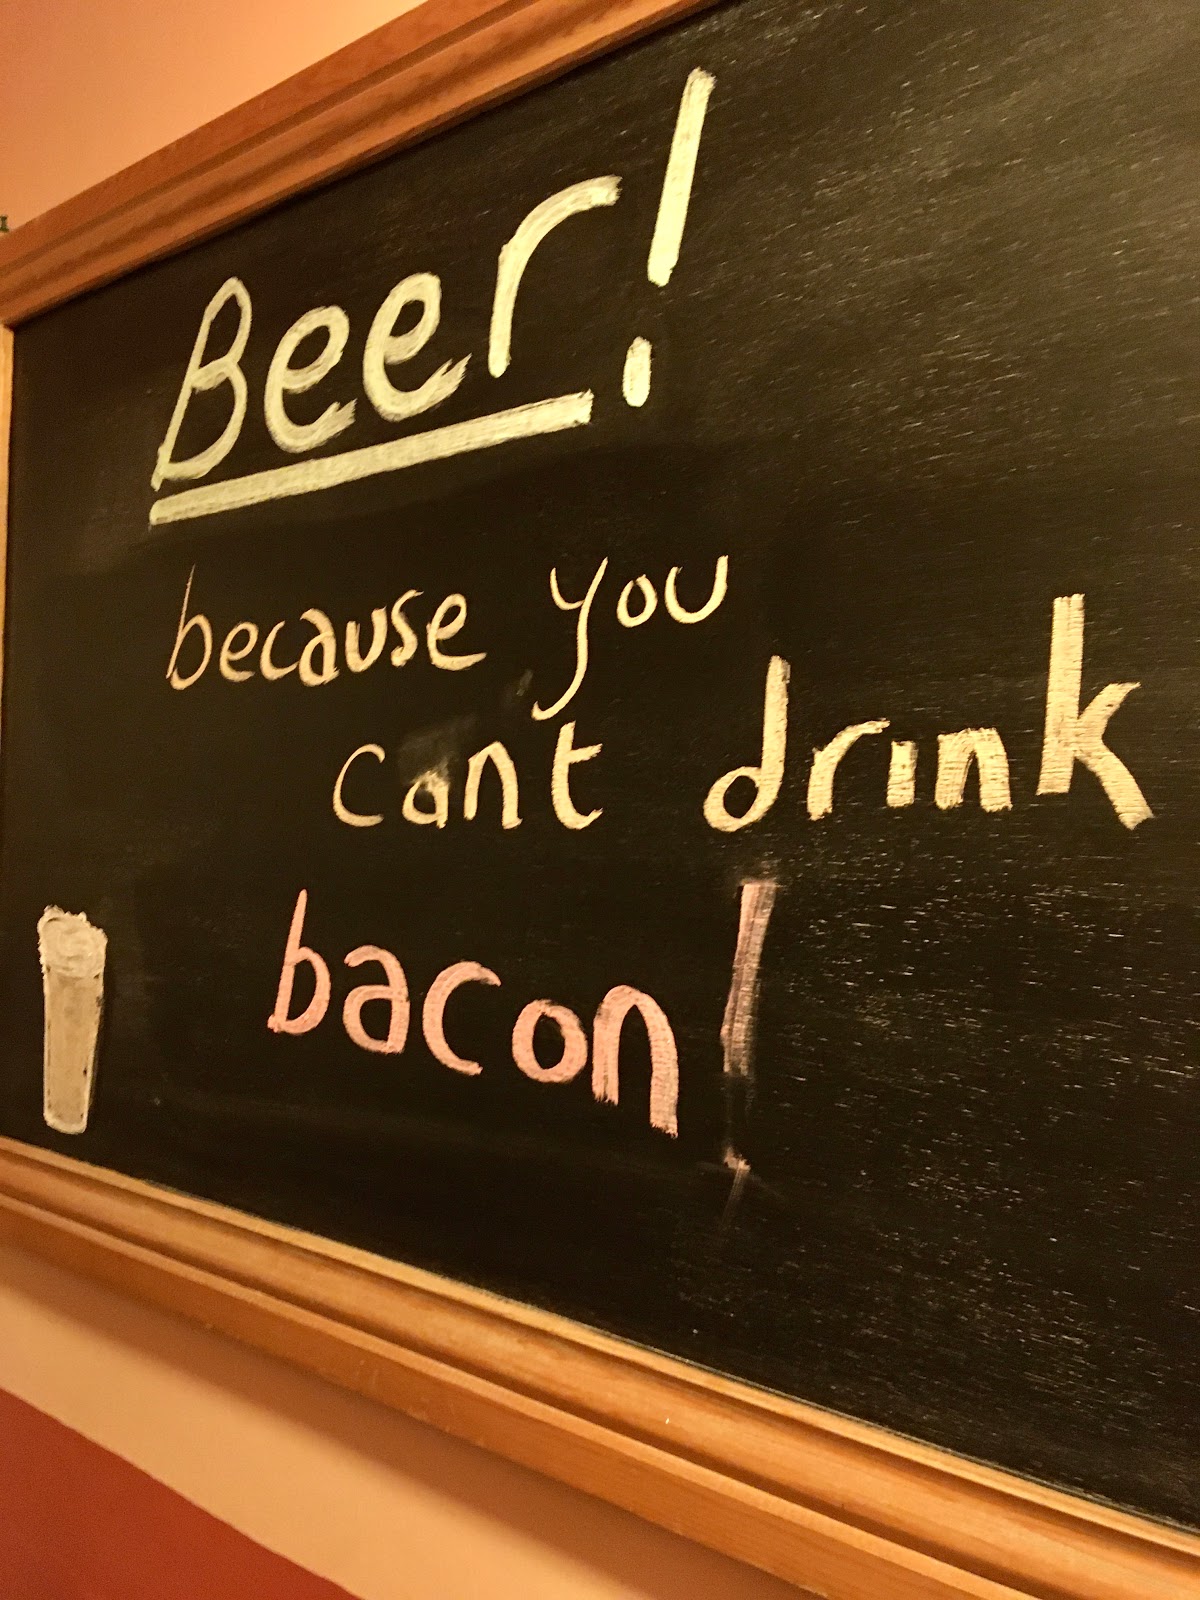 Beer!
because you
cant drink
bacon!